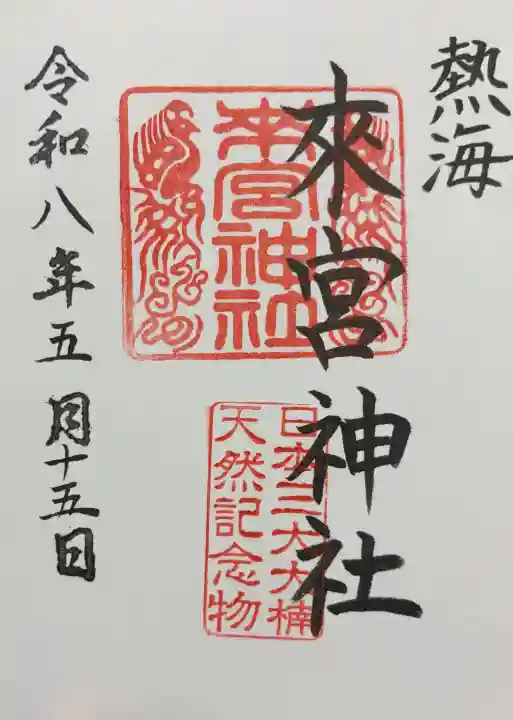 熱海
來宮神社
來宮神社
日本三大大楠
天然記念物
令和八年五月十五日